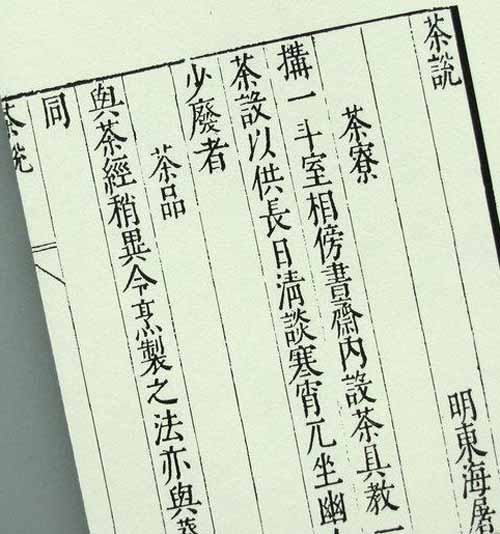 茶說
明東海屠
茶寮
搆一斗室相傍書齋內設茶具教一
茶設以供長日清談寒宵兀坐幽
少廢者
茶品
與茶經稍異今烹製之法亦與
同
茶說